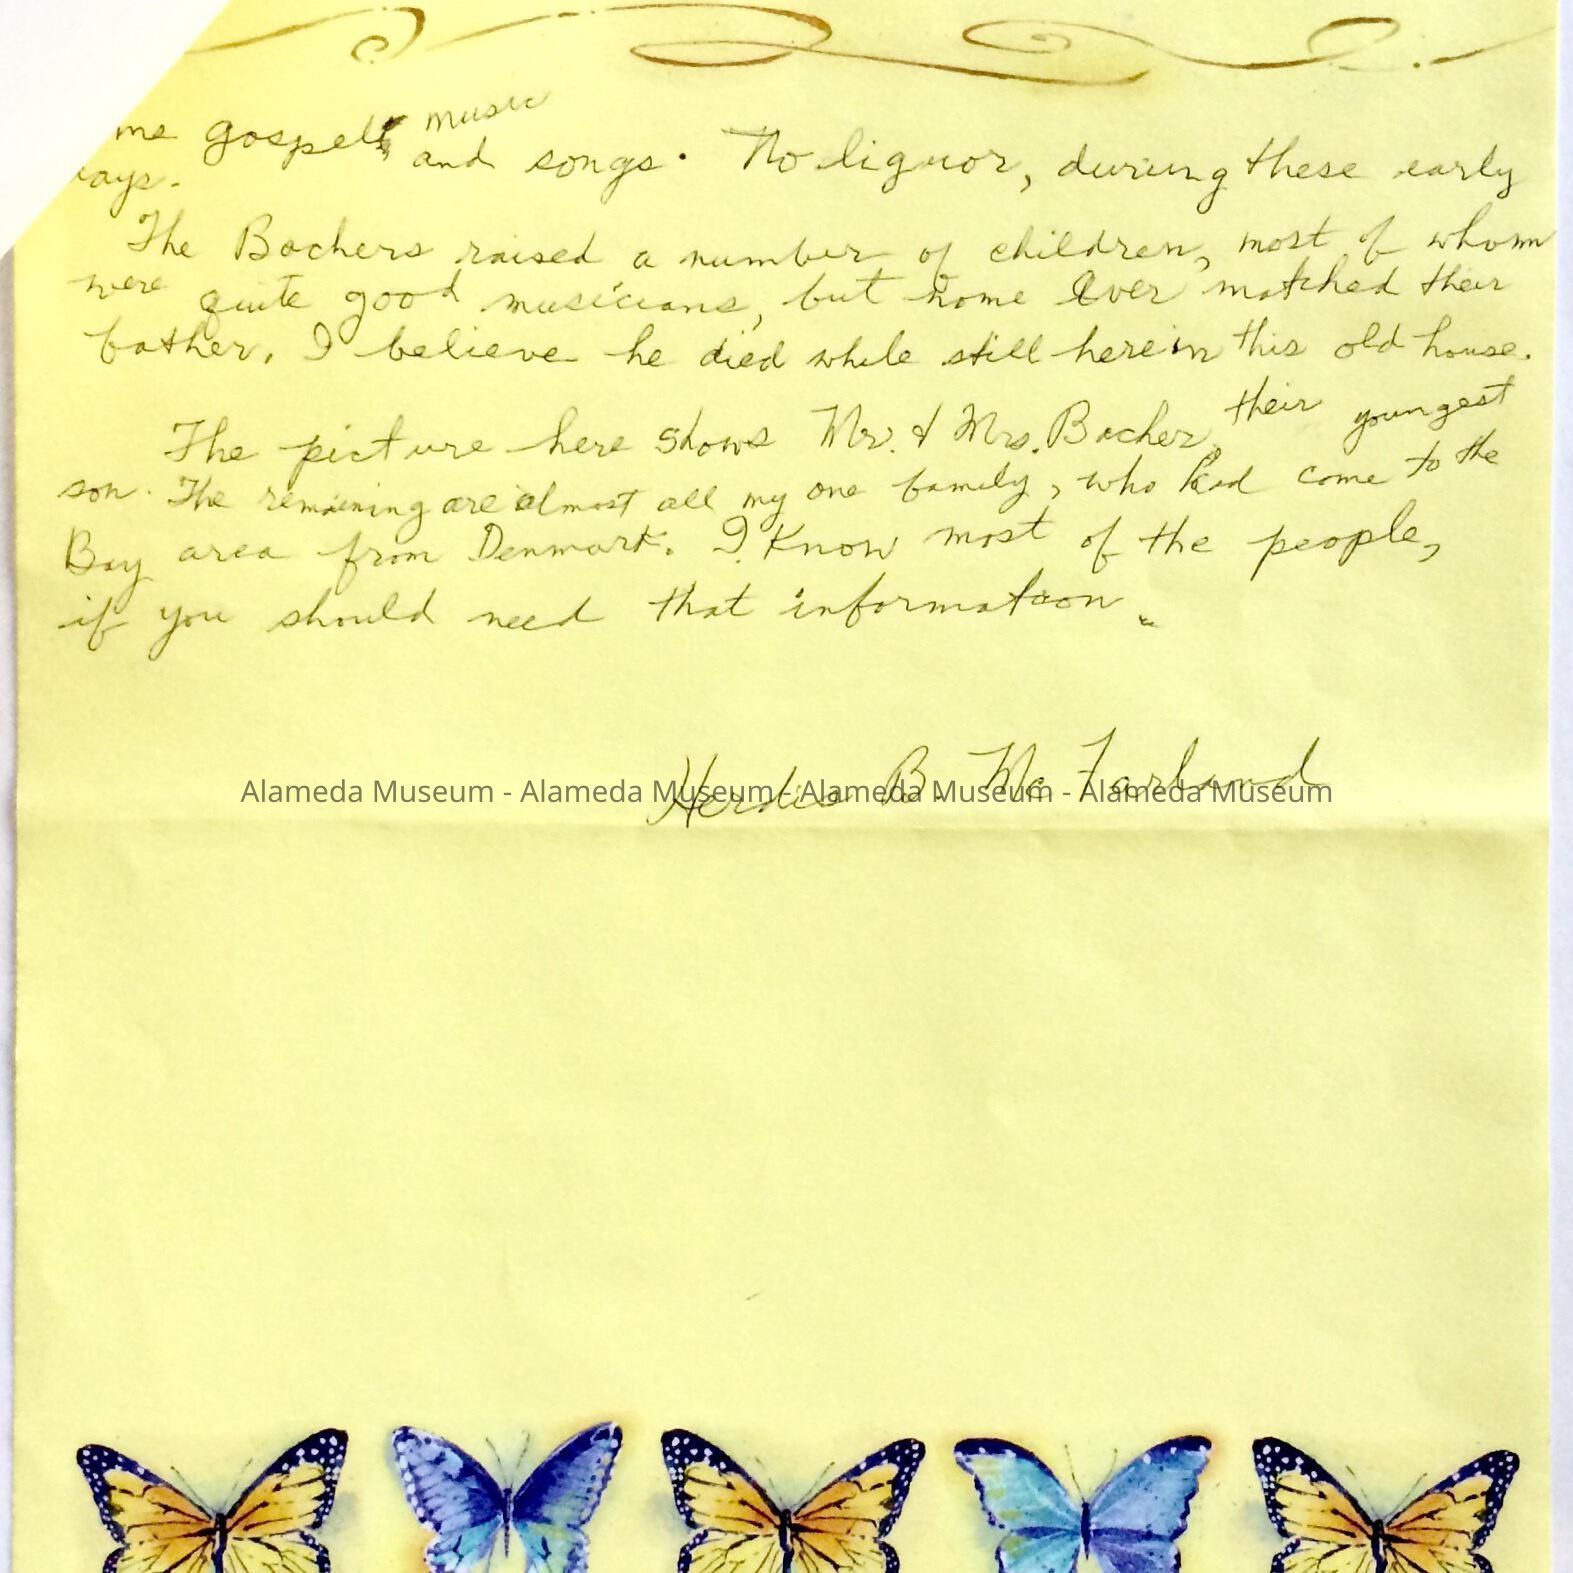 me gospel music
and songs. No liquor, during these early
days.
The Bochers raised a number of children, most of whom
were quite good musicians, but none ever matched their
father. I believe he died while still here in this old house.
The picture here shows Mr. & Mrs. Bocher, their youngest
son. The remaining are almost all my one family, who had come to the
Bay area from Denmark. I know most of the people,
if you should need that information.
Herdis B. McFarland
Alameda Museum - Alameda Museum - Alameda Museum - Alameda Museum